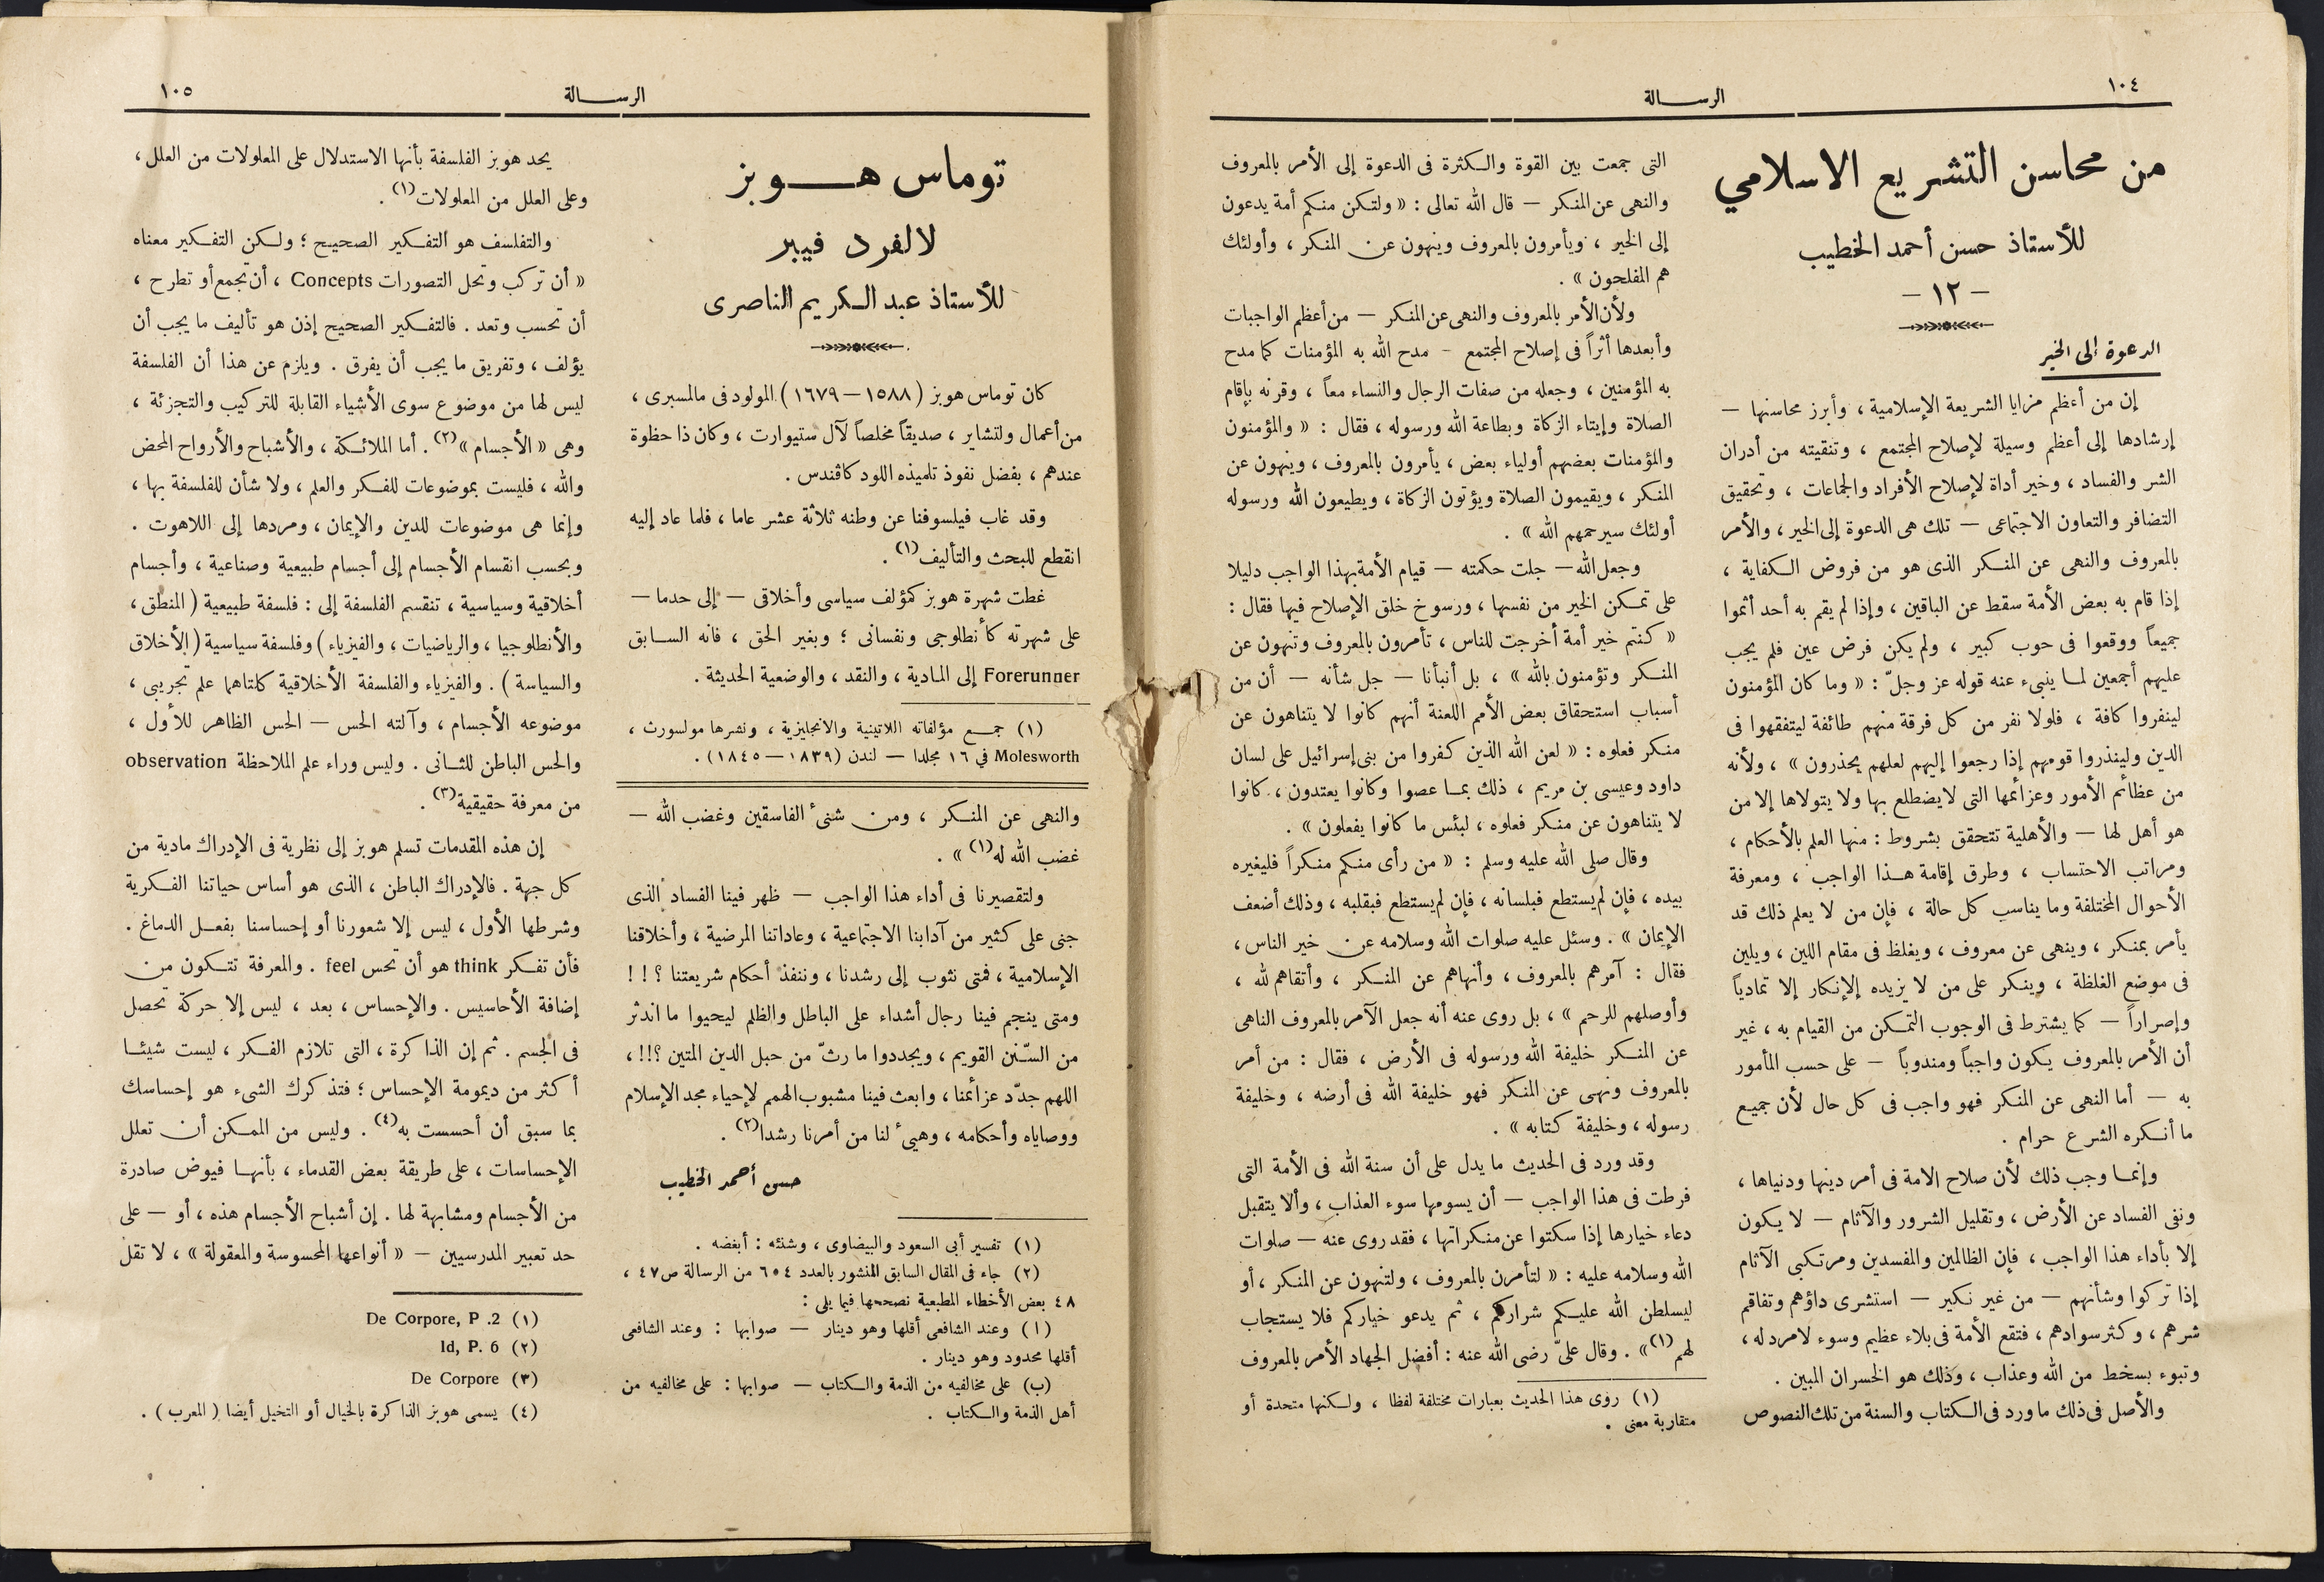 ١٠٤
الرسالة
من محاسن التشريع الاسلامي
للأستاذ حسن أحمد الخطيب
— ١٢ —
الدعوة إلى الخير
إن من أعظم مزايا الشريعة الإسلامية ، وأبرز محاسنها —
إرشادها إلى أعظم وسيلة لإصلاح المجتمع ، وتنقيته من أدران
الشر والفساد ، وخير أداة لإصلاح الأفراد والجماعات ، وتحقيق
التضافر والتعاون الاجتماعى — تلك هى الدعوة إلى الخير ، والأمر
بالمعروف والنهى عن المنكر الذى هو من فروض الكفاية ،
إذا قام به بعض الأمة سقط عن الباقين ، وإذا لم يقم به أحد أثموا
جميعاً ووقعوا فى حوب كبير ، ولم يكن فرض عين فلم يجب
عليهم أجمعين لما ينبىء عنه قوله عز وجلّ : « وما كان المؤمنون
لينفروا كافة ، فلولا نفر من كل فرقة منهم طائفة ليتفقهوا فى
الدين ولينذروا قومهم إذا رجعوا إليهم لعلهم يحذرون » ، ولأنه
من عظائم الأمور وعزائمها التى لا يضطلع بها ولا يتولاها إلا من
هو أهل لها — والأهلية تتحقق بشروط : منها العلم بالأحكام ،
ومراتب الاحتساب ، وطرق إقامة هذا الواجب ، ومعرفة
الأحوال المختلفة وما يناسب كل حالة ، فإن من لا يعلم ذلك قد
يأمر بمنكر ، وينهى عن معروف ، ويغلظ فى مقام اللين ، ويلين
فى موضع الغلظة ، وينكر على من لا يزيده الإنكار إلا تمادياً
وإصراراً — كما يشترط فى الوجوب التمكن من القيام به ، غير
أن الأمر بالمعروف يكون واجباً ومندوباً — على حسب المأمور
به — أما النهى عن المنكر فهو واجب فى كل حال لأن جميع
ما أنكره الشرع حرام .
وإنما وجب ذلك لأن صلاح الامة فى أمر دينها ودنياها ،
ونفى الفساد عن الأرض ، وتقليل الشرور والآثام — لا يكون
إلا بأداء هذا الواجب ، فإن الظالمين والمفسدين ومرتكبى الآثام
إذا تركوا وشأنهم — من غير نكير — استشرى داؤهم وتفاقم
شرهم ، وكثر سوادهم ، فتقع الأمة فى بلاء عظيم وسوء لامرد له ،
وتبوء بسخط من الله وعذاب ، وذلك هو الخسران المبين .
والأصل فى ذلك ما ورد فى الكتاب والسنة من تلك النصوص
التى جمعت بين القوة والكثرة فى الدعوة إلى الأمر بالمعروف
والنهى عن المنكر — قال الله تعالى : « ولتكن منكم أمة يدعون
إلى الخير ، ويأمرون بالمعروف وينهون عن المنكر ، وأولئك
هم المفلحون » .
ولأن الأمر بالمعروف والنهى عن المنكر — من أعظم الواجبات
وأبعدها أثراً فى إصلاح المجتمع - مدح الله به المؤمنات كما مدح
به المؤمنين ، وجعله من صفات الرجال والنساء معاً ، وقرنه بإقام
الصلاة وإيتاء الزكاة وبطاعة الله ورسوله ، فقال : « والمؤمنون
والمؤمنات بعضهم أولياء بعض ، يأمرون بالمعروف ، وينهون عن
المنكر ، ويقيمون الصلاة ويؤتون الزكاة ، ويطيعون الله ورسوله
أولئك سيرحمهم الله » .
وجعل الله — جلت حكمته — قيام الأمة بهذا الواجب دليلا
على تمكن الخير من نفسها ، ورسوخ خلق الإصلاح فيها فقال :
« كنتم خير أمة أخرجت للناس ، تأمرون بالمعروف وتنهون عن
المنكر وتؤمنون بالله » ، بل أنبأنا — جل شأنه — أن من
أسباب استحقاق بعض الأمم اللعنة أنهم كانوا لا يتناهون عن
منكر فعلوه : « لعن الله الذين كفروا من بنى إسرائيل على لسان
داود وعيسى بن مريم ، ذلك بما عصوا وكانوا يعتدون ، كانوا
لا يتناهون عن منكر فعلوه ، لبئس ما كانوا يفعلون » .
وقال صلى الله عليه وسلم : « من رأى منكم منكراً فليغيره
بيده ، فإن لم يستطع فبلسانه ، فإن لم يستطع فبقلبه ، وذلك أضعف
الإيمان » . وسئل عليه صلوات الله وسلامه عن خير الناس ،
فقال : آمرهم بالمعروف ، وأنهاهم عن المنكر ، وأتقاهم لله ،
وأوصلهم للرحم » ، بل روى عنه أنه جعل الآمر بالمعروف الناهى
عن المنكر خليفة الله ورسوله فى الأرض ، فقال : من أمر
بالمعروف ونهى عن المنكر فهو خليفة الله فى أرضه ، وخليفة
رسوله ، وخليفة كتابه » .
وقد ورد فى الحديث ما يدل على أن سنة الله فى الأمة التى
فرطت فى هذا الواجب — أن يسومها سوء العذاب ، وألا يتقبل
دعاء خيارها إذا سكتوا عن منكراتها ، فقد روى عنه — صلوات
الله وسلامه عليه : « لتأمرن بالمعروف ، ولتنهون عن المنكر ، أو
ليسلطن الله عليكم شراركم ، ثم يدعو خياركم فلا يستجاب
لهم (١) » . وقال علىّ رضى الله عنه : أفضل الجهاد الأمر بالمعروف
(١) روى هذا الحديث بعبارات مختلفة لفظا ، ولكنها متحدة أو
متقاربة معنى .
١٠٥
الرسالة
توماس هوبز
لالفرد فيبر
للأستاذ عبد الكريم الناصرى
كان توماس هوبز ( ١٥٨٨ — ١٦٧٩ ) المولود فى مالمسبرى ،
من أعمال ولتشاير ، صديقاً مخلصاً لآل ستيوارت ، وكان ذا حظوة
عندهم ، بفضل نفوذ تلميذه اللود كاڤندس .
وقد غاب فيلسوفنا عن وطنه ثلاثة عشر عاما ، فلما عاد إليه
انقطع للبحث والتأليف (١) .
غطت شهرة هوبز كمؤلف سياسى وأخلاقى — إلى حدما —
على شهرته كأنطلوجى ونفسانى ؛ وبغير الحق ، فانه السابق
Forerunner إلى المادية ، والنقد ، والوضعية الحديثة .
(١) جمع مؤلفاته اللاتينية والانجليزية ، ونشرها مولسورث ،
Molesworth في ١٦ مجلدا — لندن (١٨٣٩ — ١٨٤٥) .
والنهى عن المنكر ، ومن شنئ الفاسقين وغضب الله —
غضب الله له (١) » .
ولتقصيرنا فى أداء هذا الواجب — ظهر فينا الفساد الذى
جنى على كثير من آدابنا الاجتماعية ، وعاداتنا المرضية ، وأخلاقنا
الإسلامية ، فمتى نثوب إلى رشدنا ، وننفذ أحكام شريعتنا ؟ ! !
ومتى ينجم فينا رجال أشداء على الباطل والظلم ليحيوا ما اندثر
من السّنن القويم ، ويجددوا ما رثّ من حبل الدين المتين ؟!! ،
اللهم جدّد عزائمنا ، وابعث فينا مشبوب الهمم لإحياء مجد الإسلام
ووصاياه وأحكامه ، وهيئ لنا من أمرنا رشدا (٢) .
حسن أحمد الخطيب
(١) تفسير أبى السعود والبيضاوى ، وشنئه : أبغضه .
(٢) جاء فى المقال السابق المنشور بالعدد ٦٥٤ من الرسالة ص ٤٧ ،
٤٨ بعض الأخطاء المطبعية نصححها فيما يلى :
( ا ) وعند الشافعى أقلها وهو دينار — صوابها : وعند الشافعى
أقلها محدود وهو دينار .
(ب) على مخالفيه من الذمة والكتاب — صوابها : على مخالفيه من
أهل الذمة والكتاب .
يحد هوبز الفلسفة بأنها الاستدلال على المعلولات من العلل ،
وعلى العلل من المعلولات (١) .
والتفلسف هو التفكير الصحيح ؛ ولكن التفكير معناه
« أن تركب وتحل التصورات Concepts ، أن تجمع أو تطرح ،
أن تحسب وتعد . فالتفكير الصحيح إذن هو تأليف ما يجب أن
يؤلف ، وتفريق ما يجب أن يفرق . ويلزم عن هذا أن الفلسفة
ليس لها من موضوع سوى الأشياء القابلة للتركيب والتجزئة ،
وهى « الأجسام » (٢) . أما الملائكة ، والأشباح والأرواح المحض
والله ، فليست بموضوعات للفكر والعلم ، ولا شأن للفلسفة بها ،
وإنما هى موضوعات للدين والإيمان ، ومردها إلى اللاهوت .
وبحسب انقسام الأجسام إلى أجسام طبيعية وصناعية ، وأجسام
أخلاقية وسياسية ، تنقسم الفلسفة إلى : فلسفة طبيعية ( المنطق ،
والأنطلوجيا ، والرياضيات ، والفيزياء ) وفلسفة سياسية ( الأخلاق
والسياسة ) . والفيزياء والفلسفة الأخلاقية كلتاهما علم تجريبى ،
موضوعه الأجسام ، وآلته الحس — الحس الظاهر للأول ،
والحس الباطن للثانى . وليس وراء علم الملاحظة observation
من معرفة حقيقية (٣) .
إن هذه المقدمات تسلم هوبز إلى نظرية فى الإدراك مادية من
كل جهة . فالإدراك الباطن ، الذى هو أساس حياتنا الفكرية
وشرطها الأول ، ليس إلا شعورنا أو إحساسنا بفعل الدماغ .
فأن تفكر think هو أن تحس feel . والمعرفة تتكون من
إضافة الأحاسيس . والإحساس ، بعد ، ليس إلا حركة تحصل
فى الجسم . ثم إن الذاكرة ، التى تلازم الفكر ، ليست شيئا
أكثر من ديمومة الإحساس ؛ فتذكرك الشىء هو إحساسك
بما سبق أن أحسست به (٤) . وليس من الممكن أن تعلل
الإحساسات ، على طريقة بعض القدماء ، بأنها فيوض صادرة
من الأجسام ومشابهة لها . إن أشباح الأجسام هذه ، أو — على
حد تعبير المدرسيين — « أنواعها المحسوسة والمعقولة » ، لا تقل
(١) De Corpore, P .2
(٢) Id, P. 6
(٣) De Corpore
(٤) يسمى هوبز الذاكرة بالخيال أو التخيل أيضا ( المعرب ) .